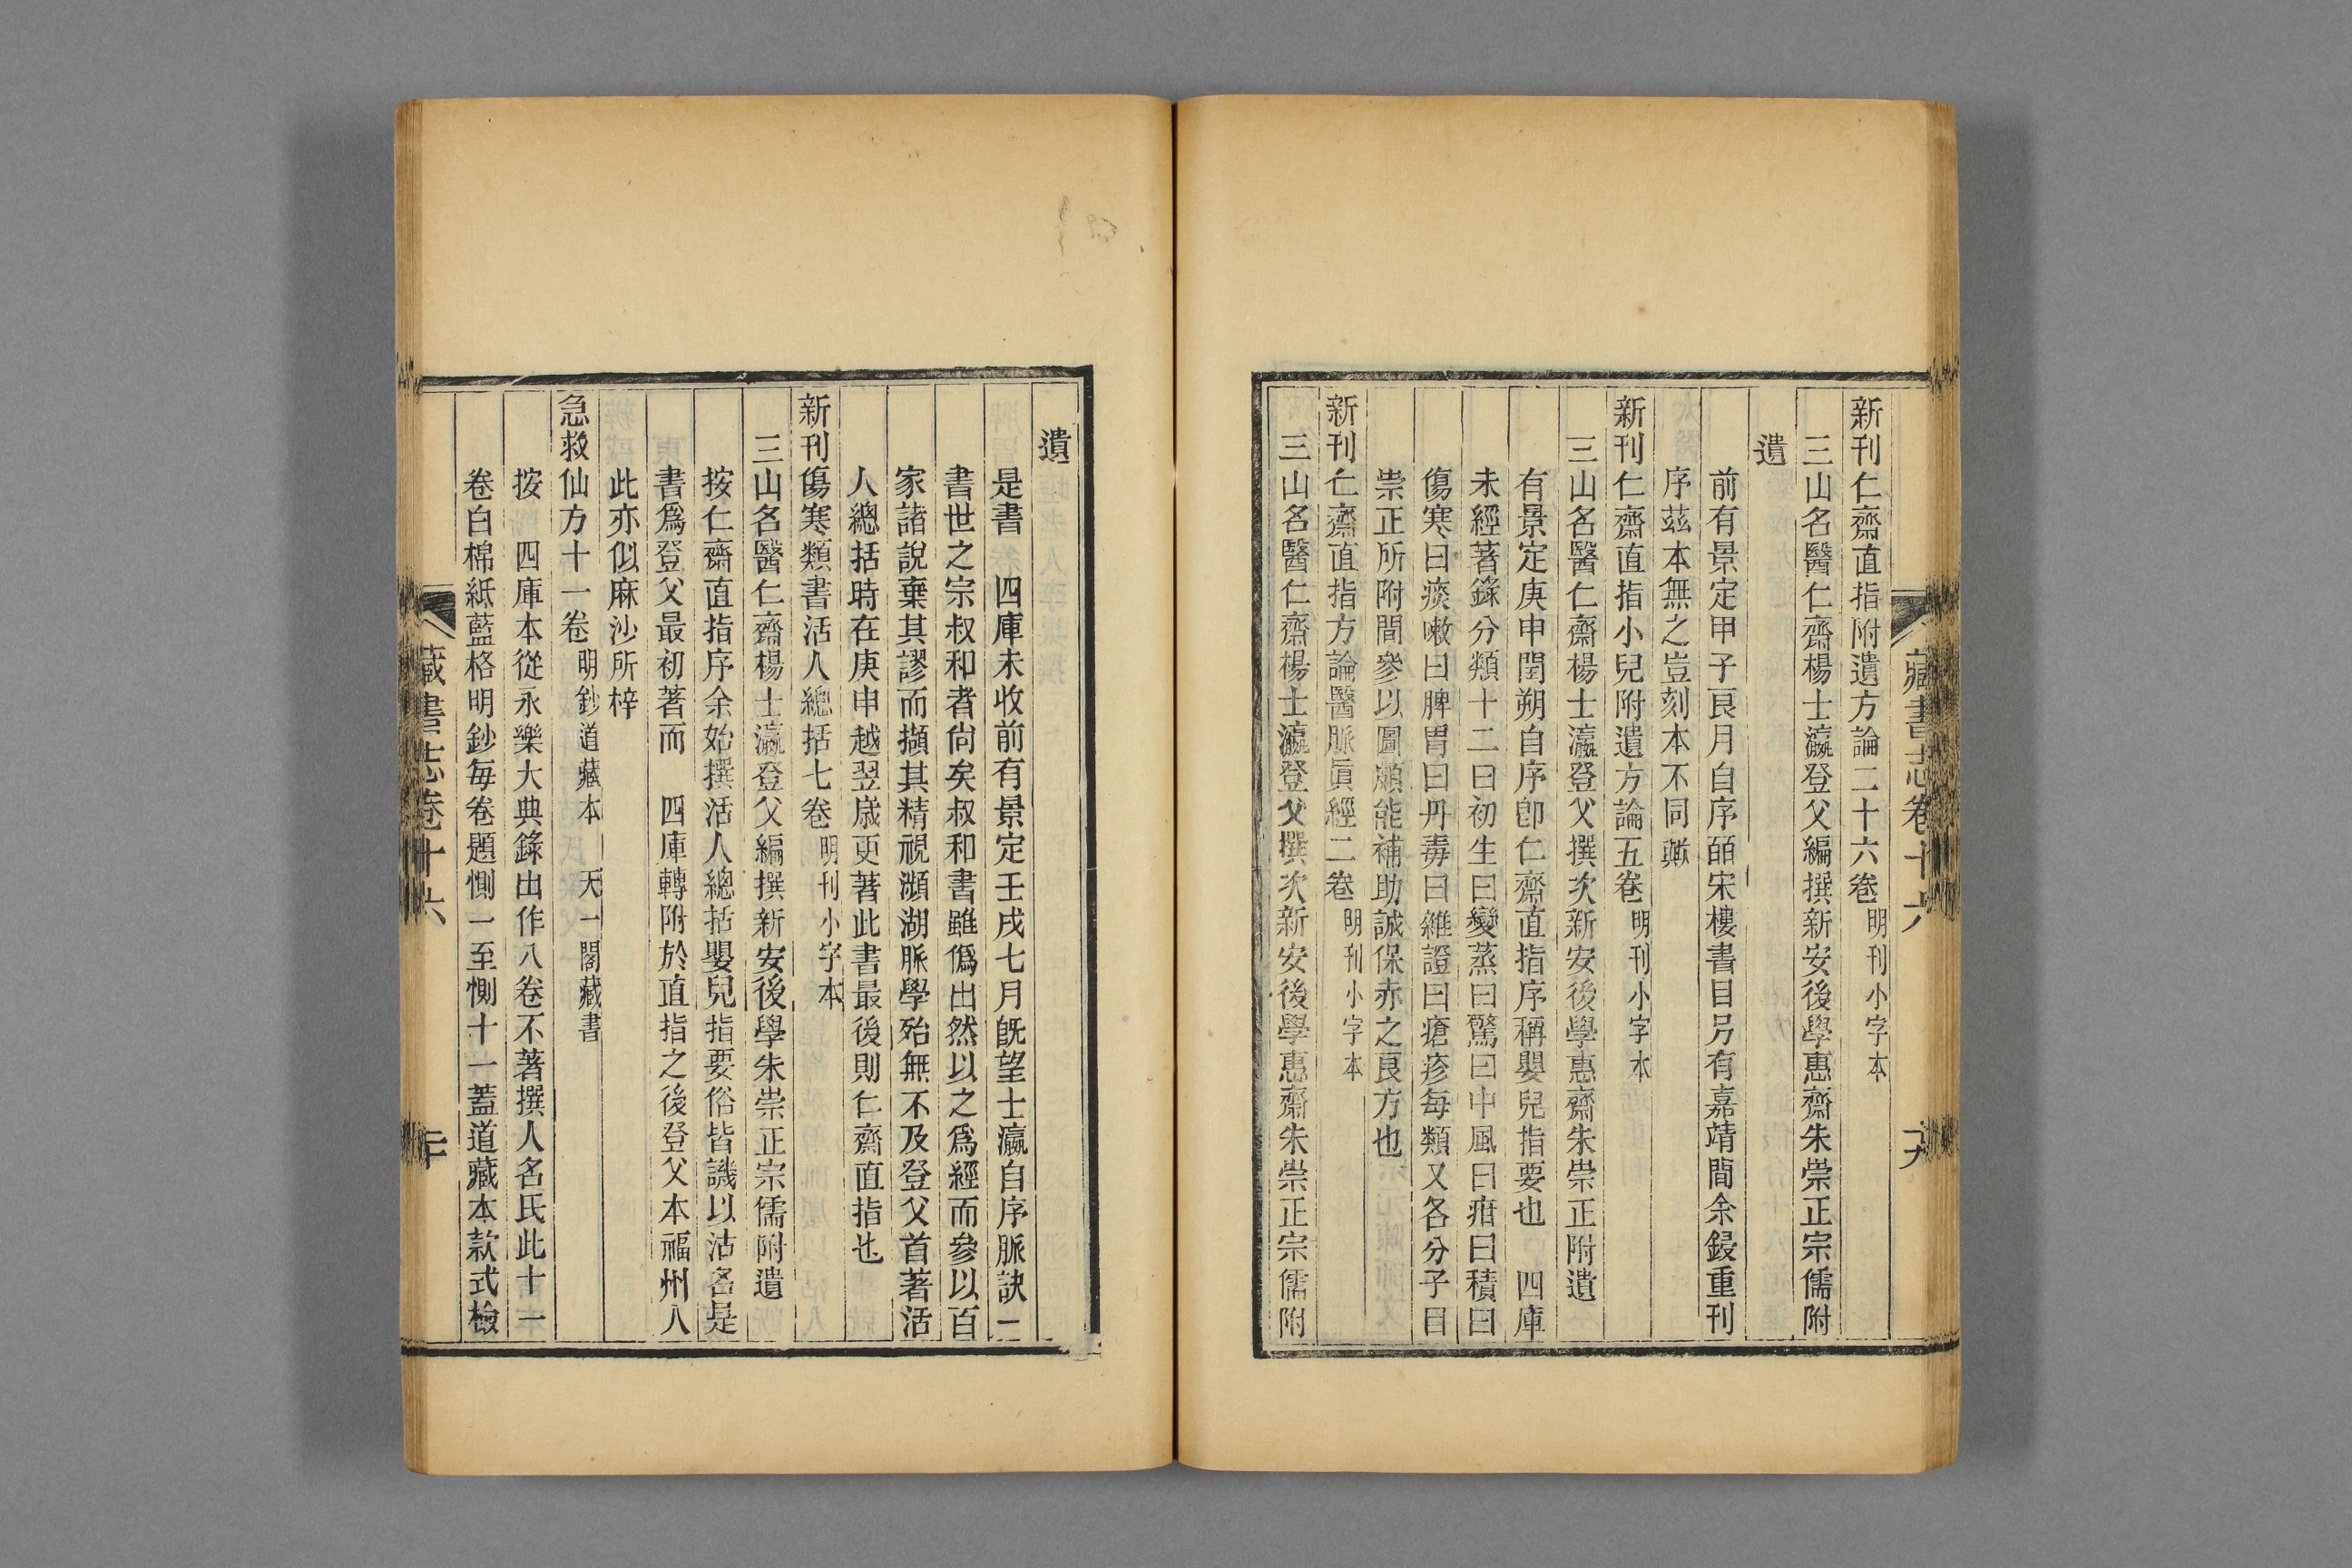 藏書志卷十六
十九
新刊仁齋直指附遺方論二十六卷 明刊小字本
三山名醫仁齋楊士瀛登父編撰新安後學惠齋朱崇正宗儒附
遺
前有景定甲子良月自序皕宋樓書目另有嘉靖間余鋟重刊
序茲本無之豈刻本不同歟
新刊仁齋直指小兒附遺方論五卷 明刊小字本
三山名醫仁齋楊士瀛登父撰次新安後學惠齋朱崇正附遺
有景定庚申閏朔自序卽仁齋直指序稱嬰兒指要也 四庫
未經著錄分類十二曰初生曰變蒸曰驚曰中風曰疳曰積曰
傷寒曰痰嗽曰脾胃曰丹毒曰雜證曰瘡疹每類又各分子目
崇正所附間參以圖頗能補助誠保赤之良方也
新刊仁齋直指方論醫脈眞經二卷 明刊小字本
三山名醫仁齋楊士瀛登父撰次新安後學惠齋朱崇正宗儒附
遺
是書 四庫未收前有景定壬戌七月旣望士瀛自序脈訣一
書世之宗叔和者尙矣叔和書雖僞出然以之爲經而參以百
家諸說棄其謬而擷其精視瀕湖脈學殆無不及登父首著活
人總括時在庚申越翌歲更著此書最後則仁齋直指也
新刊傷寒類書活人總括七卷 明刊小字本
三山名醫仁齋楊士瀛登父編撰新安後學朱崇正宗儒附遺
按仁齋直指序余始撰活人總括嬰兒指要俗皆譏以沽名是
書爲登父最初著而 四庫轉附於直指之後登父本福州人
此亦似麻沙所梓
急救仙方十一卷 明鈔道藏本 天一閣藏書
按 四庫本從永樂大典錄出作八卷不著撰人名氏此十一
卷白棉紙藍格明鈔每卷題惻一至惻十一蓋道藏本款式檢
藏書志卷十六
二十